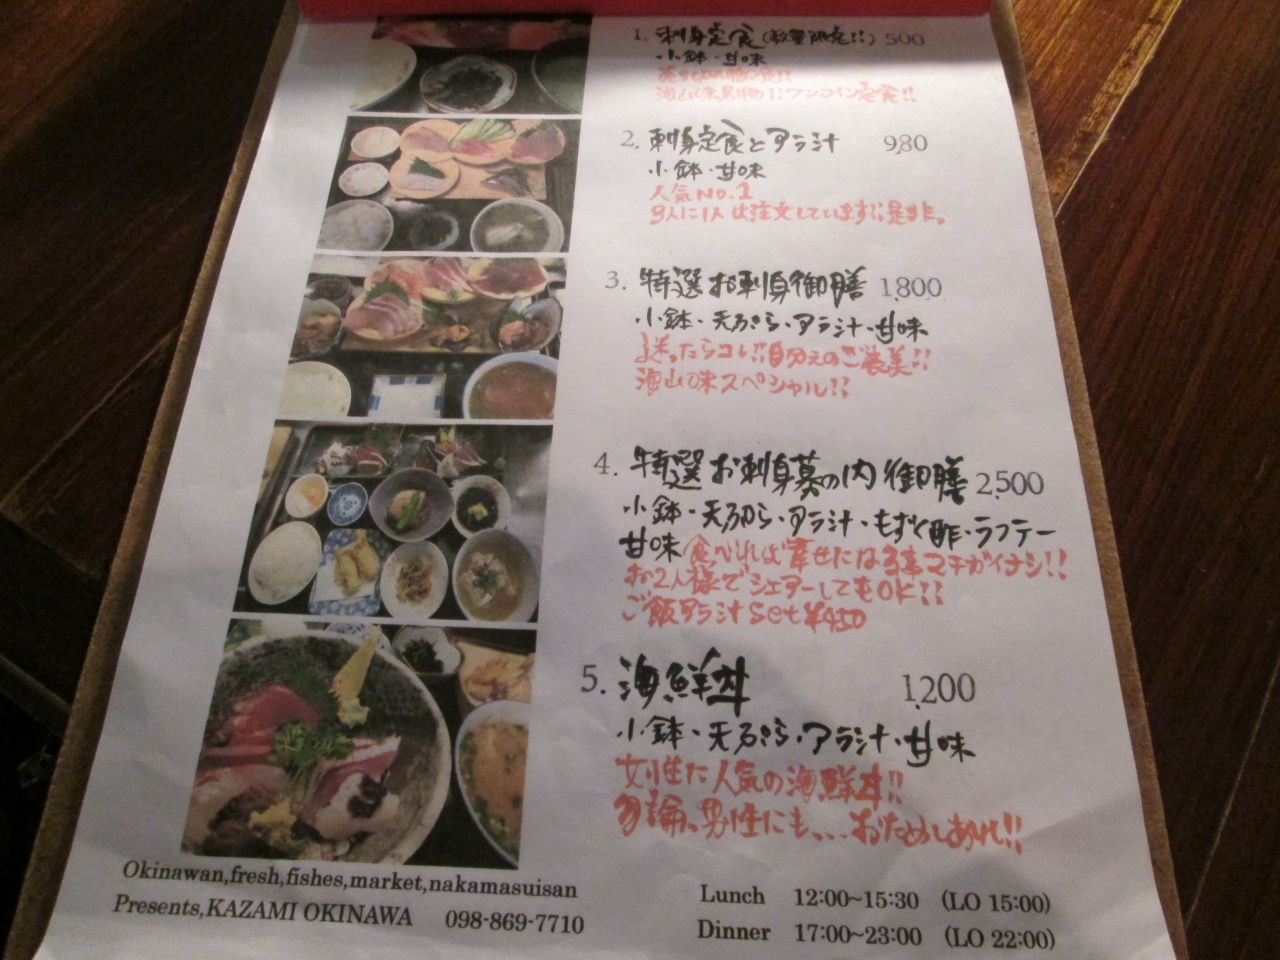 1. 刺身定食(数量限定!!) 500
小鉢・甘味
海山味名物!!ワンコイン定食!!
2. 刺身定食とアラ汁 980
小鉢・甘味
人気NO.1
3人に1人は注文しています!!是非。
3. 特選お刺身御膳 1,800
小鉢・天ぷら・アラ汁・甘味
迷ったらコレ!!自分へのご褒美!!
海山味スペシャル!!
4. 特選お刺身幕の内御膳 2,500
小鉢・天ぷら・アラ汁・もずく酢・ラフテー
甘味 食べれば幸せになる事マチガイナシ!!
お2人様でシェアーしてもOK!!
ご飯アラ汁set ¥450
5. 海鮮丼 1,200
小鉢・天ぷら・アラ汁・甘味
女性に人気の海鮮丼!!
勿論、男性にも、、、おためしあれ!!
Okinawan,fresh,fishes,market,nakamasuisan
Presents,KAZAMI OKINAWA 098-869-7710
Lunch 12:00~15:30 (LO 15:00)
Dinner 17:00~23:00 (LO 22:00)